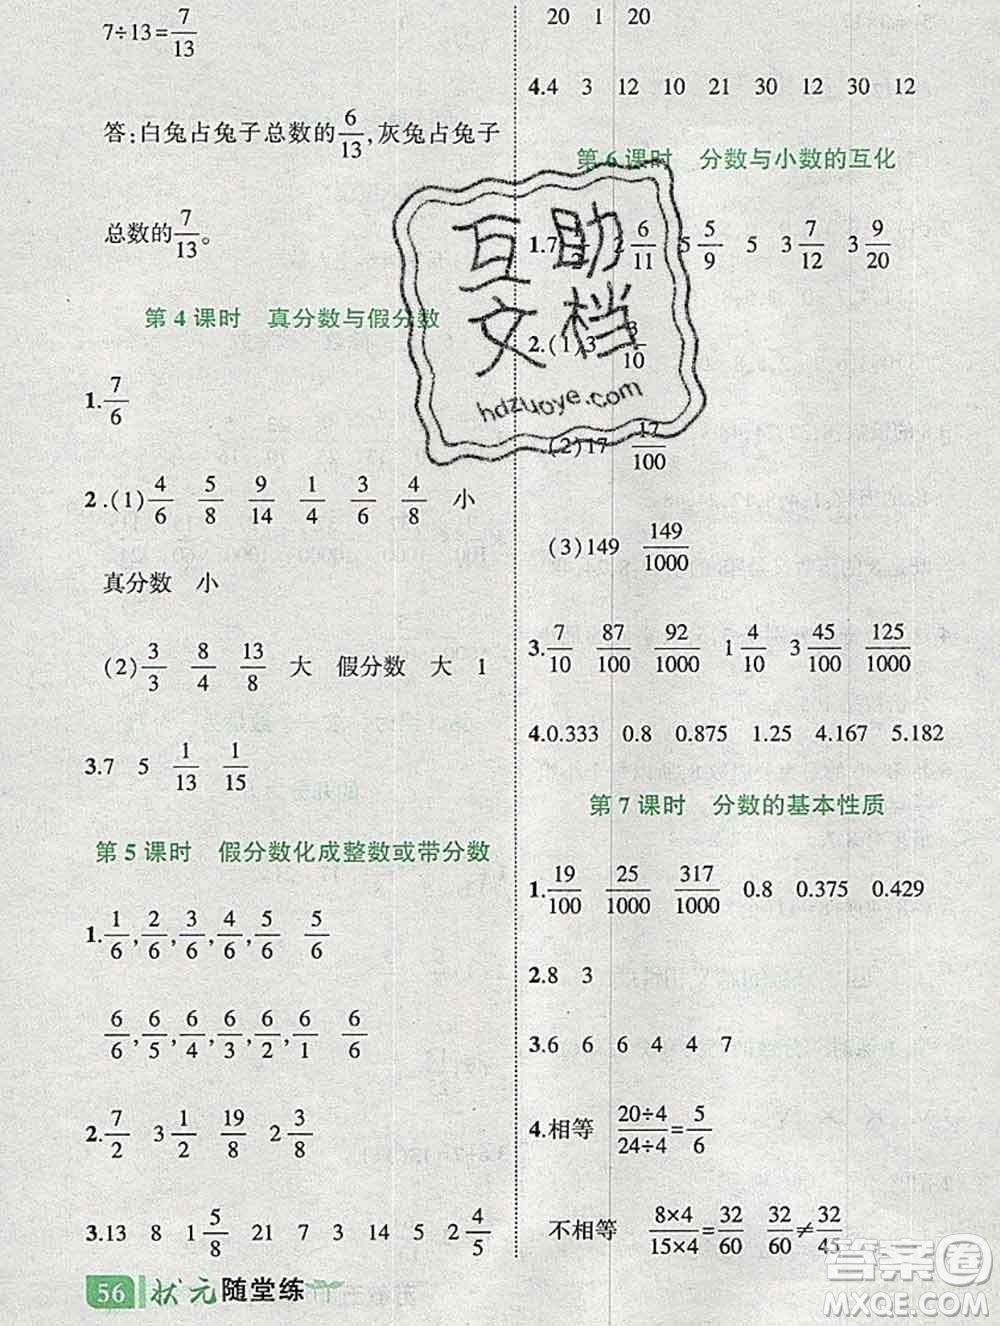 7÷13=7/13
答:白兔占兔子总数的6/13,灰兔占兔子
总数的7/13。
第 4 课时 真分数与假分数
1.7/6
2.(1)4/6 5/8 9/14 1/4 3/6 4/8 小
真分数 小
(2)3/3 8/4 13/8 大 假分数 大 1
3.7 5 1/13 1/15
第 5 课时 假分数化成整数或带分数
1.1/6,2/6,3/6,4/6,5/6 5/6
6/6,6/5,6/4,6/3,6/2,6/1 6/6
2.7/2 3 1/2 19/8 2 3/8
3.13 8 1 5/8 21 7 3 14 5 2 4/5
56 状元随堂练
20 1 20
4.4 3 12 10 21 30 12 30 12
第 6 课时 分数与小数的互化
1.7 6/11 5 5/9 5 3 7/12 3 9/20
2.(1)3 3/10
(2)17 17/100
(3)149 149/1000
3.7/10 87/100 92/1000 1 4/10 3 45/100 125/1000
4.0.333 0.8 0.875 1.25 4.167 5.182
第 7 课时 分数的基本性质
1.19/100 25/1000 317/1000 0.8 0.375 0.429
2.8 3
3.6 6 6 4 4 7
4.相等 20÷4/24÷4=5/6
不相等 8×4/15×4=32/60 32/60≠32/45
互助
文档
hdzuoye.com
答案圈
MXQE.COM